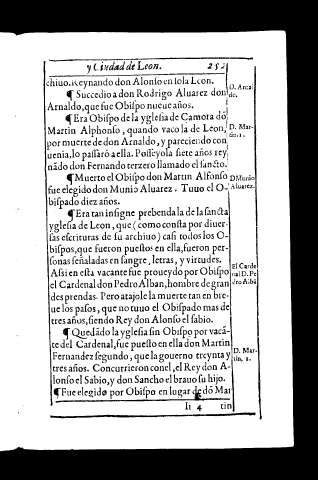 y Ciudad de Leon. 252
chiuo. Reynando don Alonso en sola Leon.
¶ Succedio a don Rodrigo Aluarez don
Arnaldo, que fue Obispo nueue años.
D. Arnal
do.
¶ Era Obispo de la yglesia de Çamora dõ
Martin Alphonso, quando vaco la de Leon,
por muerte de don Arnaldo, y pareciendo con
uenia, lo passarõ a ella. Posseyola siete años rey
nãdo don Fernando tercero llamado el sancto.
D. Mar-
tin. 1.
¶ Muerto el Obispo don Martin Alfonso
fue elegido don Munio Aluarez. Tuuo el O-
bispado diez años.
D Munio
Aluarez.
¶ Era tan insigne prebenda la de la sancta
yglesia de Leon, que (como consta por diuer
sas escrituras de su archiuo) casi todos los O-
bispos, que fueron puestos en ella, fueron per-
sonas señaladas en sangre, letras, y virtudes.
Assi en esta vacante fue proueydo por Obispo
el Cardenal don Pedro Alban, hombre de gran
des prendas. Pero atajole la muerte tan en bre-
ue los passos, que no tuuo el Obispado mas de
tres años, siendo Rey don Alonso el sabio.
El Carde
nal D. Pe
dro Albã
¶ Quedãdo la yglesia sin Obispo por vacã-
te del Cardenal, fue puesto en ella don Martin
Fernandez segundo, que la gouerno treynta y
tres años. Concurrieron con el, el Rey don A-
lonso el Sabio, y don Sancho el brauo su hijo.
D. Mar-
tin, 2.
¶ Fue elegido por Obispo en lugar de dõ Mar
Ii 4 tin